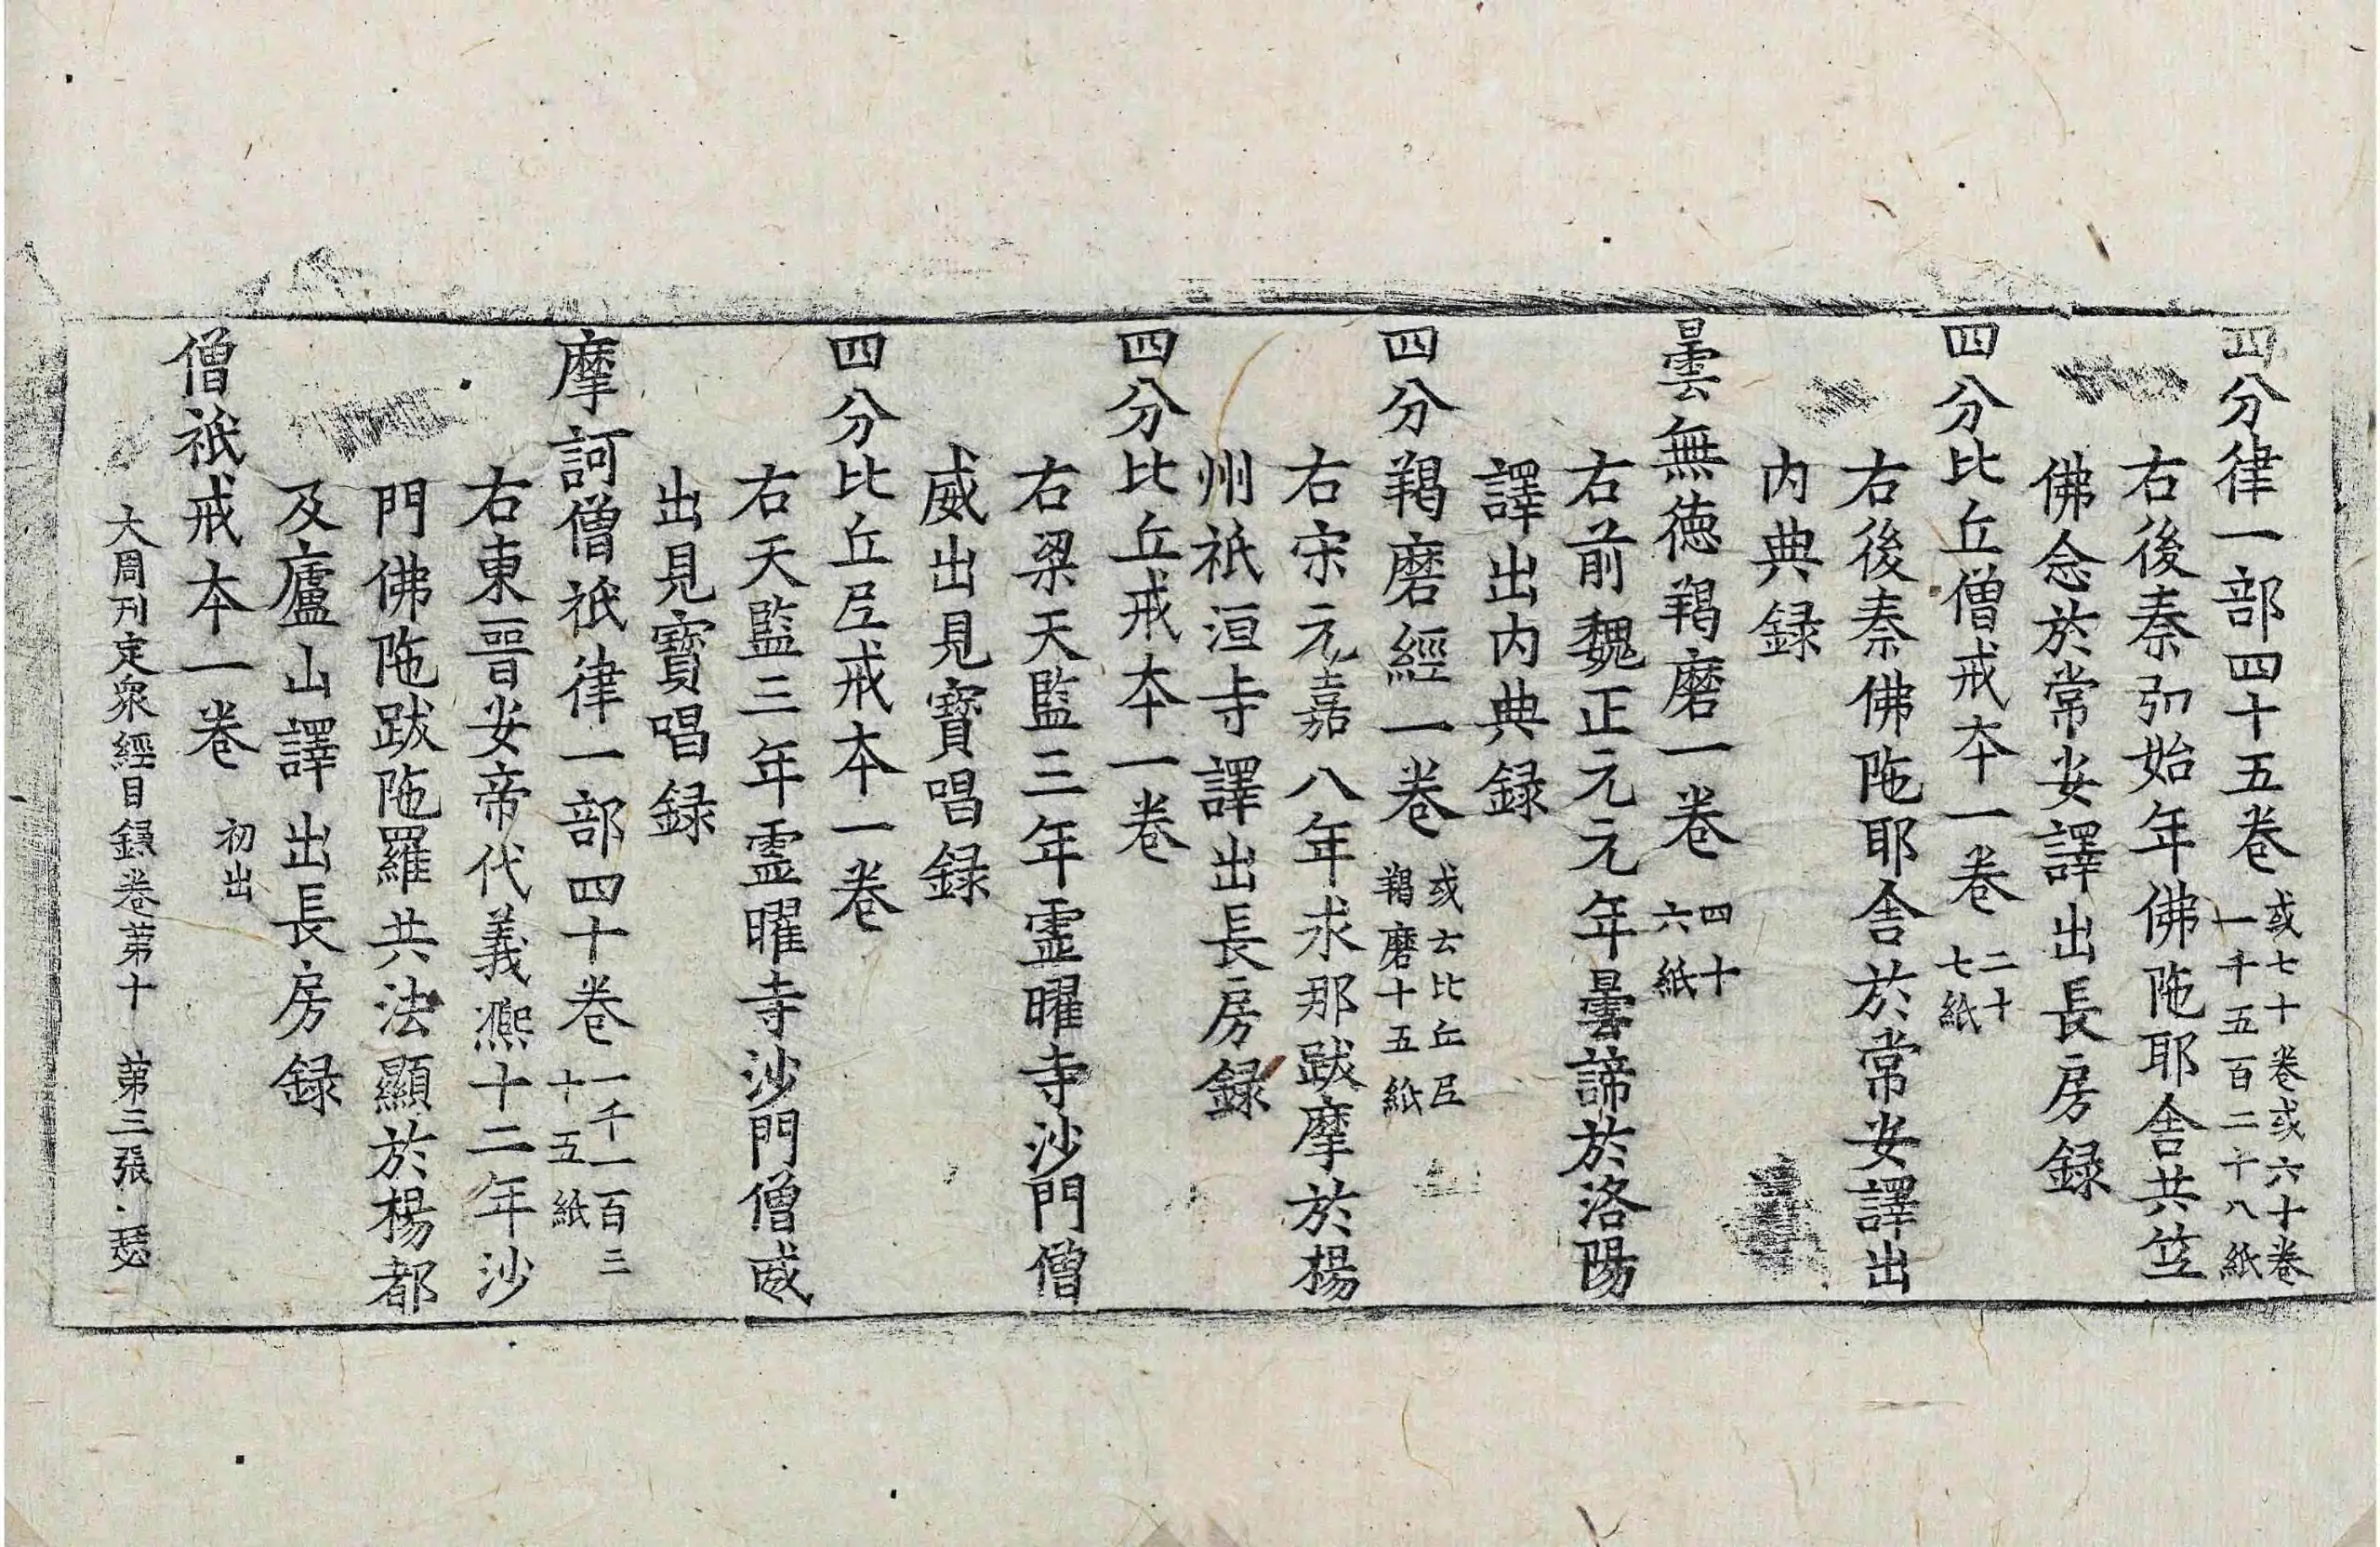 四分律一部四十五卷 或七十卷或六十卷一千五百二十八紙
右後秦弘始年佛陁耶舍共笁
佛念於常安譯出長房録
四分比丘僧戒本一卷 二十七紙
右後秦佛陁耶舍於常安譯出
内典録
曇無徳羯磨一卷 四十六紙
右前魏正元元年曇諦於洛陽
譯出内典録
四分羯磨經一卷 或云比丘尼羯磨十五紙
右宋元嘉八年求那跋摩於楊
州祇洹寺譯出長房録
四分比丘戒本一卷
右梁天監三年靈曜寺沙門僧
威出見寶唱録
四分比丘尼戒本一卷
右天監三年靈曜寺沙門僧威
出見寶唱録
摩訶僧祇律一部四十卷 一千一百三十五紙
右東晉安帝代義熈十二年沙
門佛陁跋陁羅共法顯於楊都
及廬山譯出長房録
僧祇戒本一卷 初出
大周刊定衆經目録卷苐十 苐三張 瑟